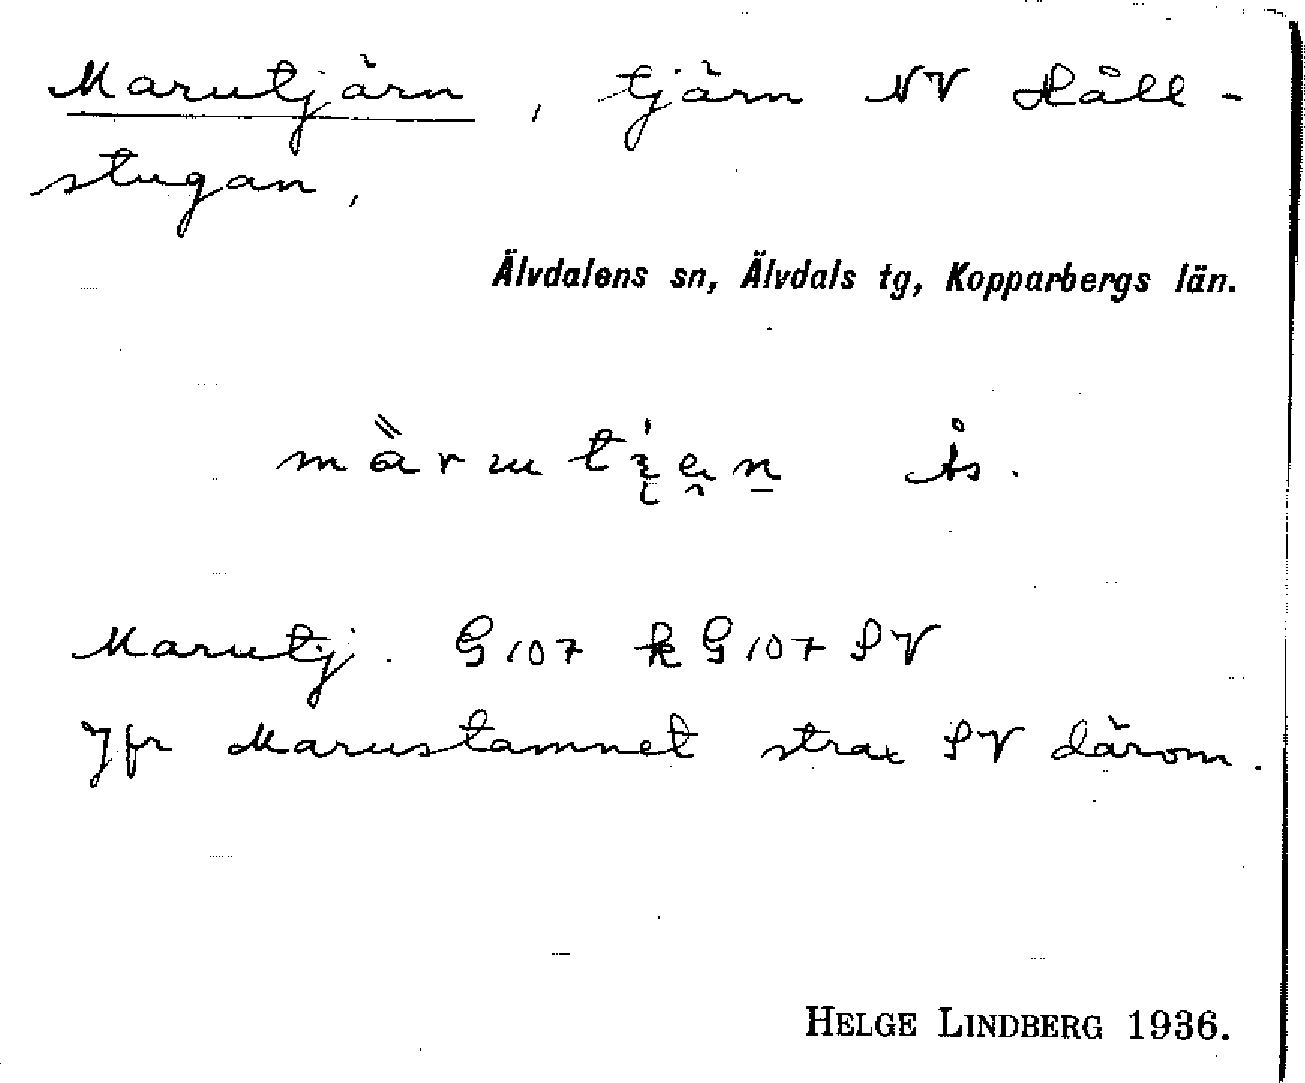 Marutjärn, tjärn NV Håll-
stugan,
Älvdalens sn, Älvdals tg, Kopparbergs län.
Ås.
Marutj. G 107 k G 107 SV
Jfr Marustamnet strax SV därom.
HELGE LINDBERG 1936.